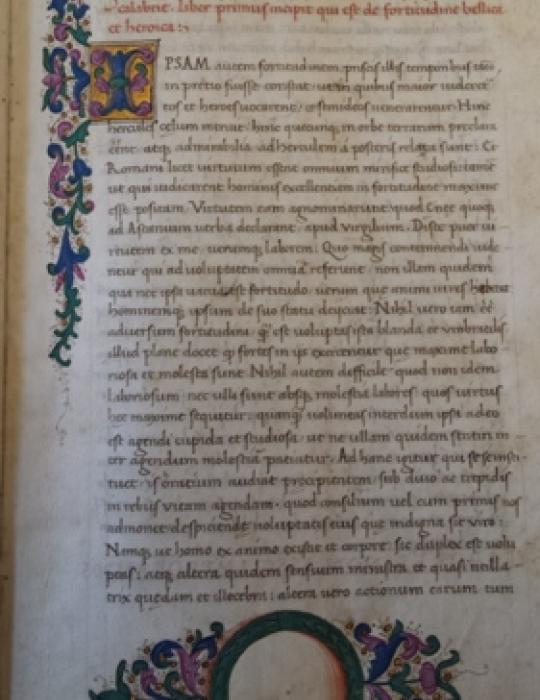 calabrie. liber primus incipit qui est de fortitudine bellica
et heroica:
IPSAM autem fortitudinem priscis illis temporibus
in pretio fuisse constat: ut in quibus maior
eos et heroes uocarent: Hinc
hercules celum meruit: hinc quecunq; in orbe terrarum preclara
atq; admirabilia ad herculem a posteris relata sunt: Et
Romani licet uirtutum essent omnium mirifice studiosi: tamē
ut qui iudicarent hominis excellentiam in fortitudine maxime
esse positam. Virtutem eam agnominarunt: quod Enee quoq;
ad Ascanium uerba declarant: apud Virgilium. Disce puer uir
tutem ex me: uerumq; laborem: Quo magis contemnendi uide
ntur qui ad uoluptatem omnia referunt: non illam quidem
que nec ipsa fortitudo: uerum que animi uires
hominemq; ipsum de suo statu deiciat: Nihil uero tam ēē
aduersum fortitudini: est uoluptas ista blanda et
illud plane docet fortes in ijs exercentur que maxime labo
riosa et molesta sunt. Nihil autem difficile quod non idem
laboriosum: nec ulli sunt absq; molestia labores: quos uirtus
hec maxime sequitur: quanq; uolumus interdum ipsi adeo
est agendi cupida et studiosa: ut ne ullam quidem
agendum molestiā patiatur: Ad hanc igitur qui se
tuet: is oraculum audiat precipientem: sub duio ac trepidis
in rebus uitam agendam: quod consilium uel cum primis nos
admonet despiciende uoluptatis eius que indigna sit uiro:
Namq; ut homo ex animo existit et corpore: sic duplex est uolu
ptas: atq; altera quidem sensuum ministra et quasi
trix quedam et illecebra: altera uero actionum earum tum